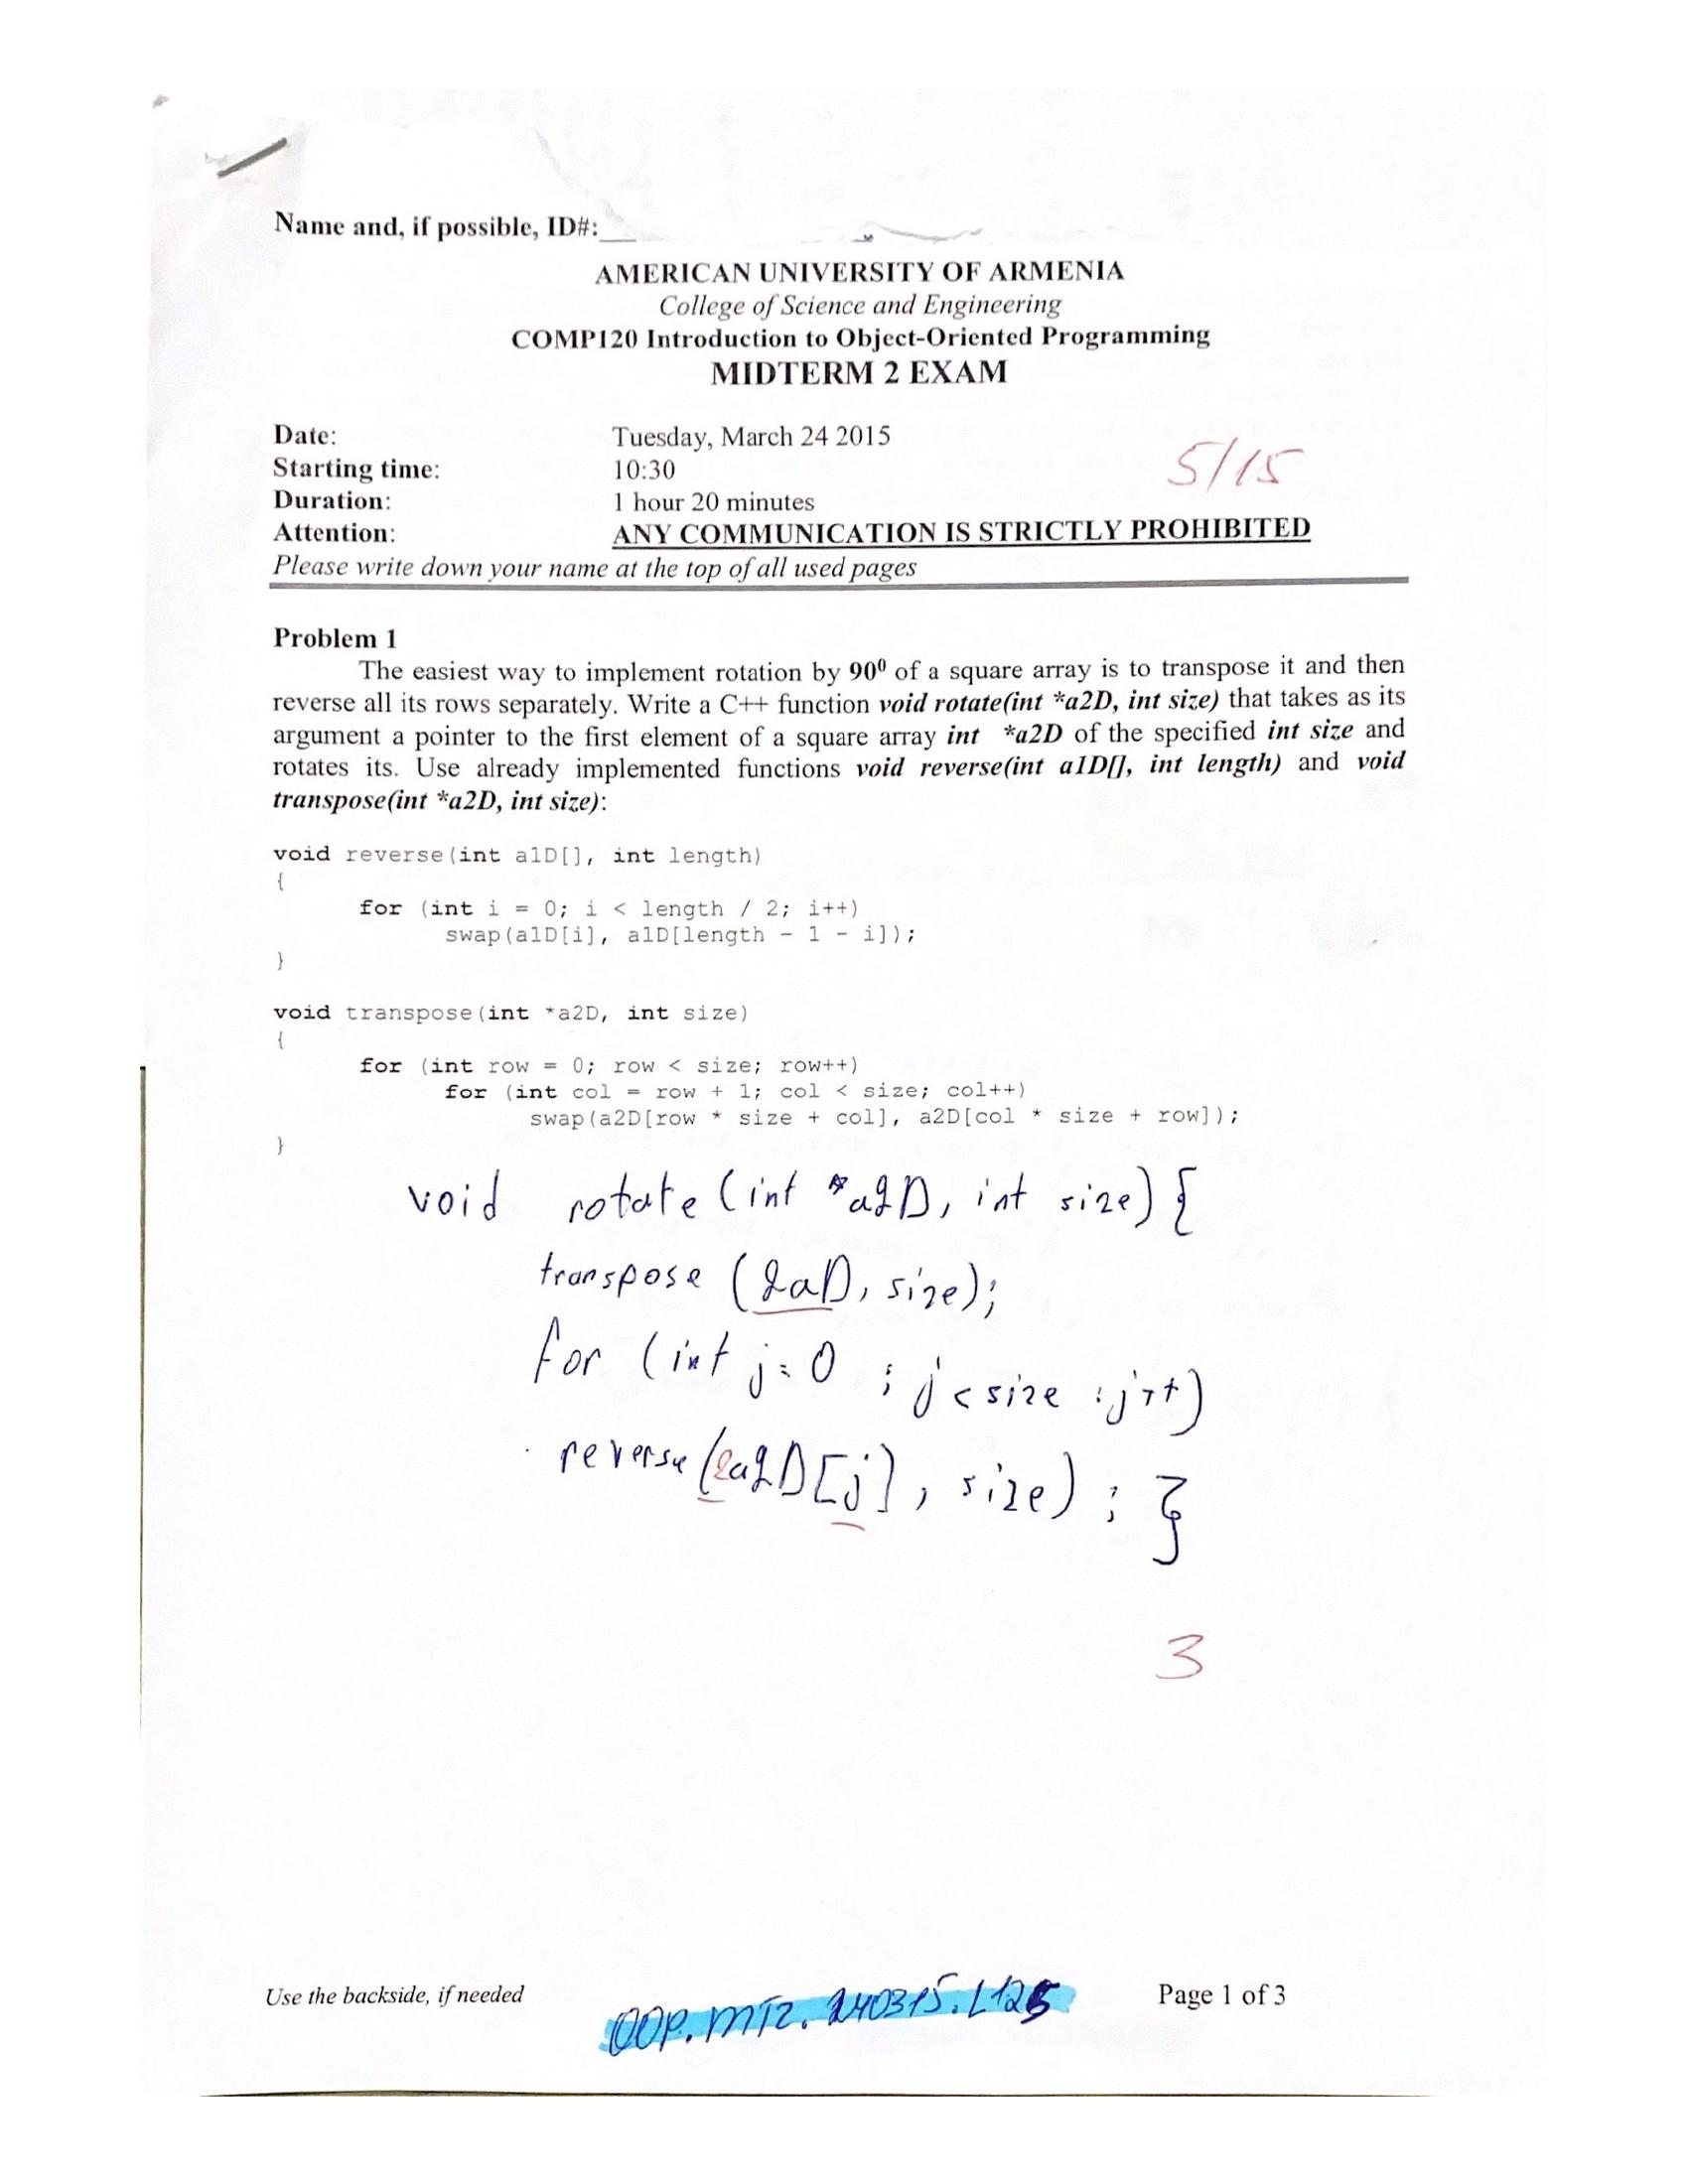 Name and, if possible, ID#:__
AMERICAN UNIVERSITY OF ARMENIA
College of Science and Engineering
COMP120 Introduction to Object-Oriented Programming
MIDTERM 2 EXAM
Date: Tuesday, March 24 2015
5/15
Starting time: 10:30
Duration: 1 hour 20 minutes
Attention: ANY COMMUNICATION IS STRICTLY PROHIBITED
Please write down your name at the top of all used pages
Problem 1
The easiest way to implement rotation by 90⁰ of a square array is to transpose it and then
reverse all its rows separately. Write a C++ function void rotate(int *a2D, int size) that takes as its
argument a pointer to the first element of a square array int *a2D of the specified int size and
rotates its. Use already implemented functions void reverse(int a1D[], int length) and void
transpose(int *a2D, int size):
void reverse(int a1D[], int length)
{
for (int i = 0; i < length / 2; i++)
swap(a1D[i], a1D[length - 1 - i]);
}
void transpose(int *a2D, int size)
{
for (int row = 0; row < size; row++)
for (int col = row + 1; col < size; col++)
swap(a2D[row * size + col], a2D[col * size + row]);
}
void rotate (int *a2D, int size) {
transpose (2aD, size);
for (int j=0 ; j < size ; j++)
reverse(&a2D[j], size) ; }
3
Use the backside, if needed
OOP.MT2.240315.L125
Page 1 of 3